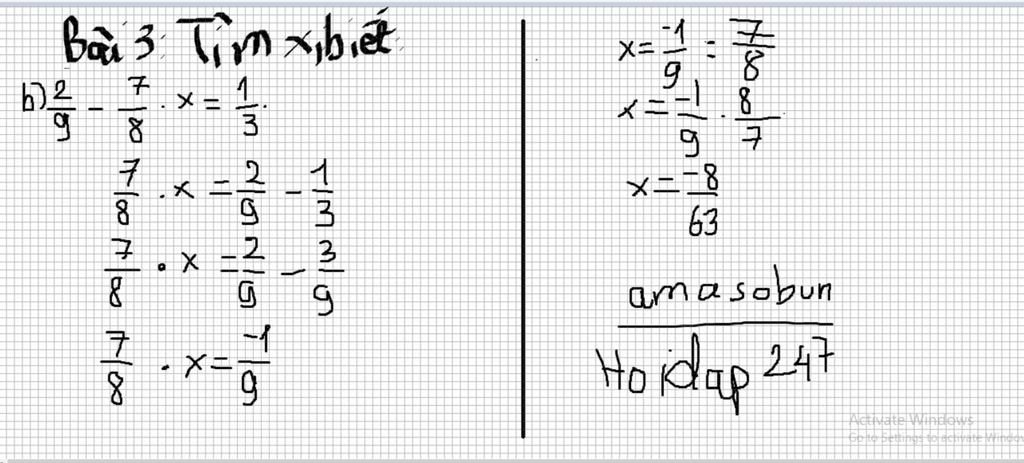 Bài 3: Tìm x, biết:
b) 2/9 - 7/8 . x = 1/3.
7/8 . x = 2/9 - 1/3
7/8 . x = 2/9 - 3/9
7/8 . x = -1/9
x = -1/9 : 7/8
x = -1/9 . 8/7
x = -8/63
amasobun
Hoidap 247
Activate Windows
Go to Settings to activate Window